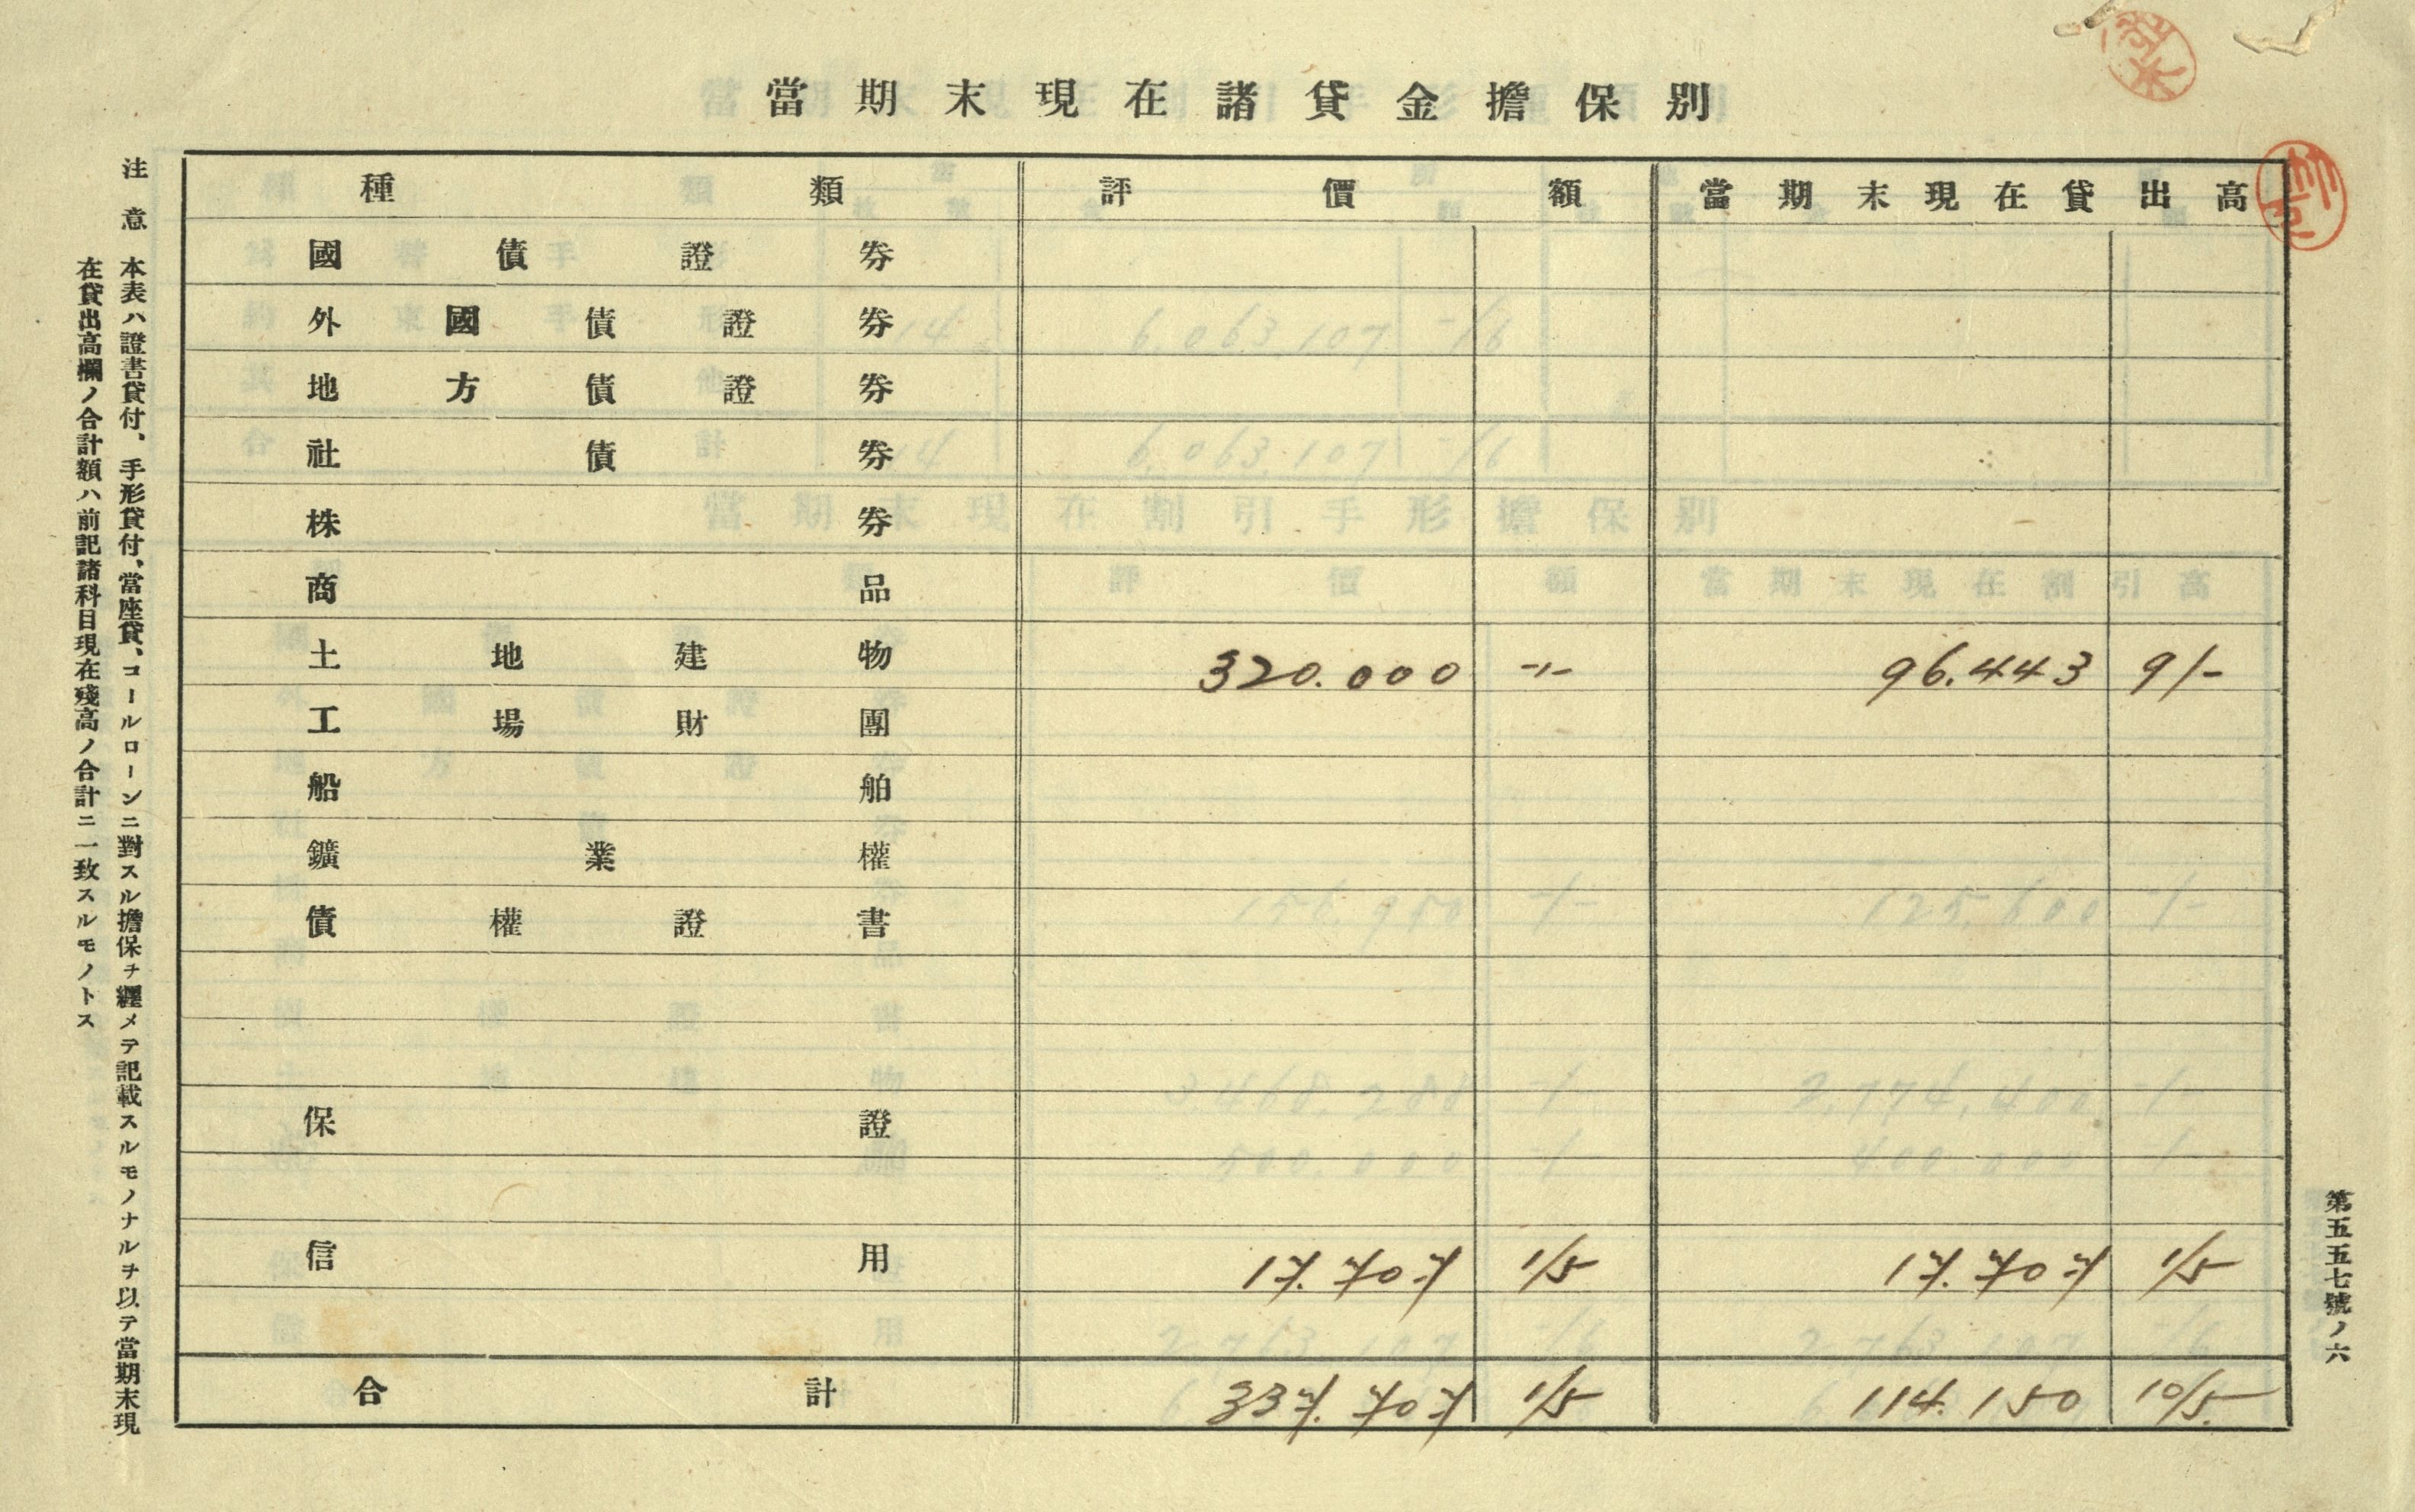 當期末現在諸貸金擔保別
種類 評價額 當期末現在貸出高
國債證券
外國債證券
地方債證券
社債券
株券
商品
土地建物 320.000 -/- 96.443 9/-
工場財團
船舶
鑛業權
債權證書
保證
信用 17.707 1/5 17.707 1/5
合計 337.707 1/5 114.150 10/5
注意 本表ハ證書貸付、手形貸付、當座貸、コールローンニ對スル擔保ヲ纒メテ記載スルモノナルヲ以テ當期末現
在貸出高欄ノ合計額ハ前記諸科目現在殘高ノ合計ニ一致スルモノトス
第五五七號ノ六